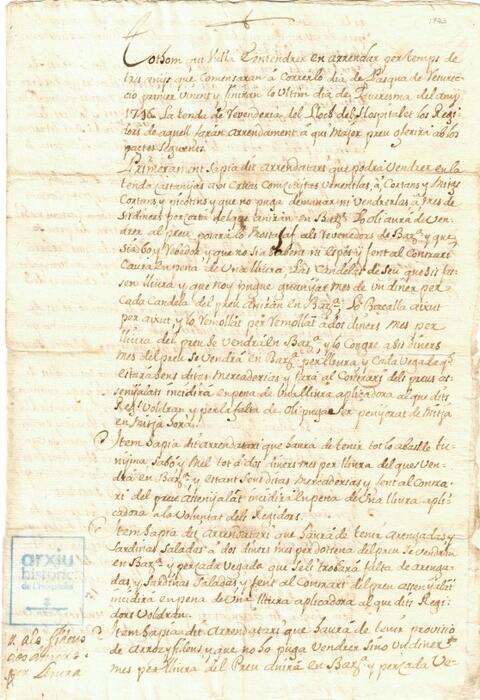 1743
Tothom qui Vulla Entendrer en arrendar per temps de
tres anys que Comensaran á Correr lo dia de Pasqua de Resurec
ció primer vinent y finiran lo Ultim dia de Quaresma del any
1746. La tenda de Revenderia del Lloch del Hospitalet los Regi
dors de aquell faran Arrendament á qui Major preu oferirá ab los
pactes seguents.
Primerament Sapia dit Arrendatari que podrá Vendrer en la
tenda
Cortans y picotins y que no puga demanar ni Vendrerlas á mes de
sis diners per del que Aniran en Barª. Lo Oli aurá de Ven
drer al preu posará lo Mostasaf als Revenedors de Barª y que
sia bo y Rebedor y que no sia ni y fent al Contrari
Caurá en pena de Una lliura. Las Candelas de Seu que sie
sen lliura y que no y puga guanyar mes de un diner per
Cada Candela del preu aniran en Barª; Lo Bacallá per
aixut y lo Remollat per Remollat á dos diners mes per
lliura del preu Se Vendrá en Barª, y lo Congre á sis diners
mes del preu Se Vendrá en Barª per lliura y Cada Vegada qᵉ
estará Sens ditas mercaderias y fará al Contrari dels preus as
senyalats incidirá en pena de Una lliura aplicadora al que dits
Regᵈˢ Voldran y per la falta de Oli puga Ser penyorat de Mitja
en Mitja hora.
Item Sapia dit arrendatari que haurá de tenir tot lo abasto tu
nyina, Sabó y Mel tot á dos diners mes per lliura del que es Ven
drá en Barª y estant Sens ditas Mercaderias y fent al Contra
ri del preu assenyalat incidirá en pena de Una lliura apli
cadora á la Voluntat dels Regidors.
Item Sapia dit Arrendatari que haurá de tenir arengadas y
Sardinas Saladas á dos diners mes per dotzena del preu Se Vendran
en Barª y per cada Vegada que Seli trobará falta de arenga
das y Sardinas Saladas y fent al Contrari del preu assenyalat
incidirá en pena de Una lliura aplicadora al que dits Regi
dors Voldran.
Item Sapia dit Arrendatari que haurá de tenir provisio
de Arros y fideus y que no ho puga Vendrer Sino Un diner
mes per lliura del Preu anirá en Barª y per cada Ve-
arxiu
històric
de l'Hospitalet